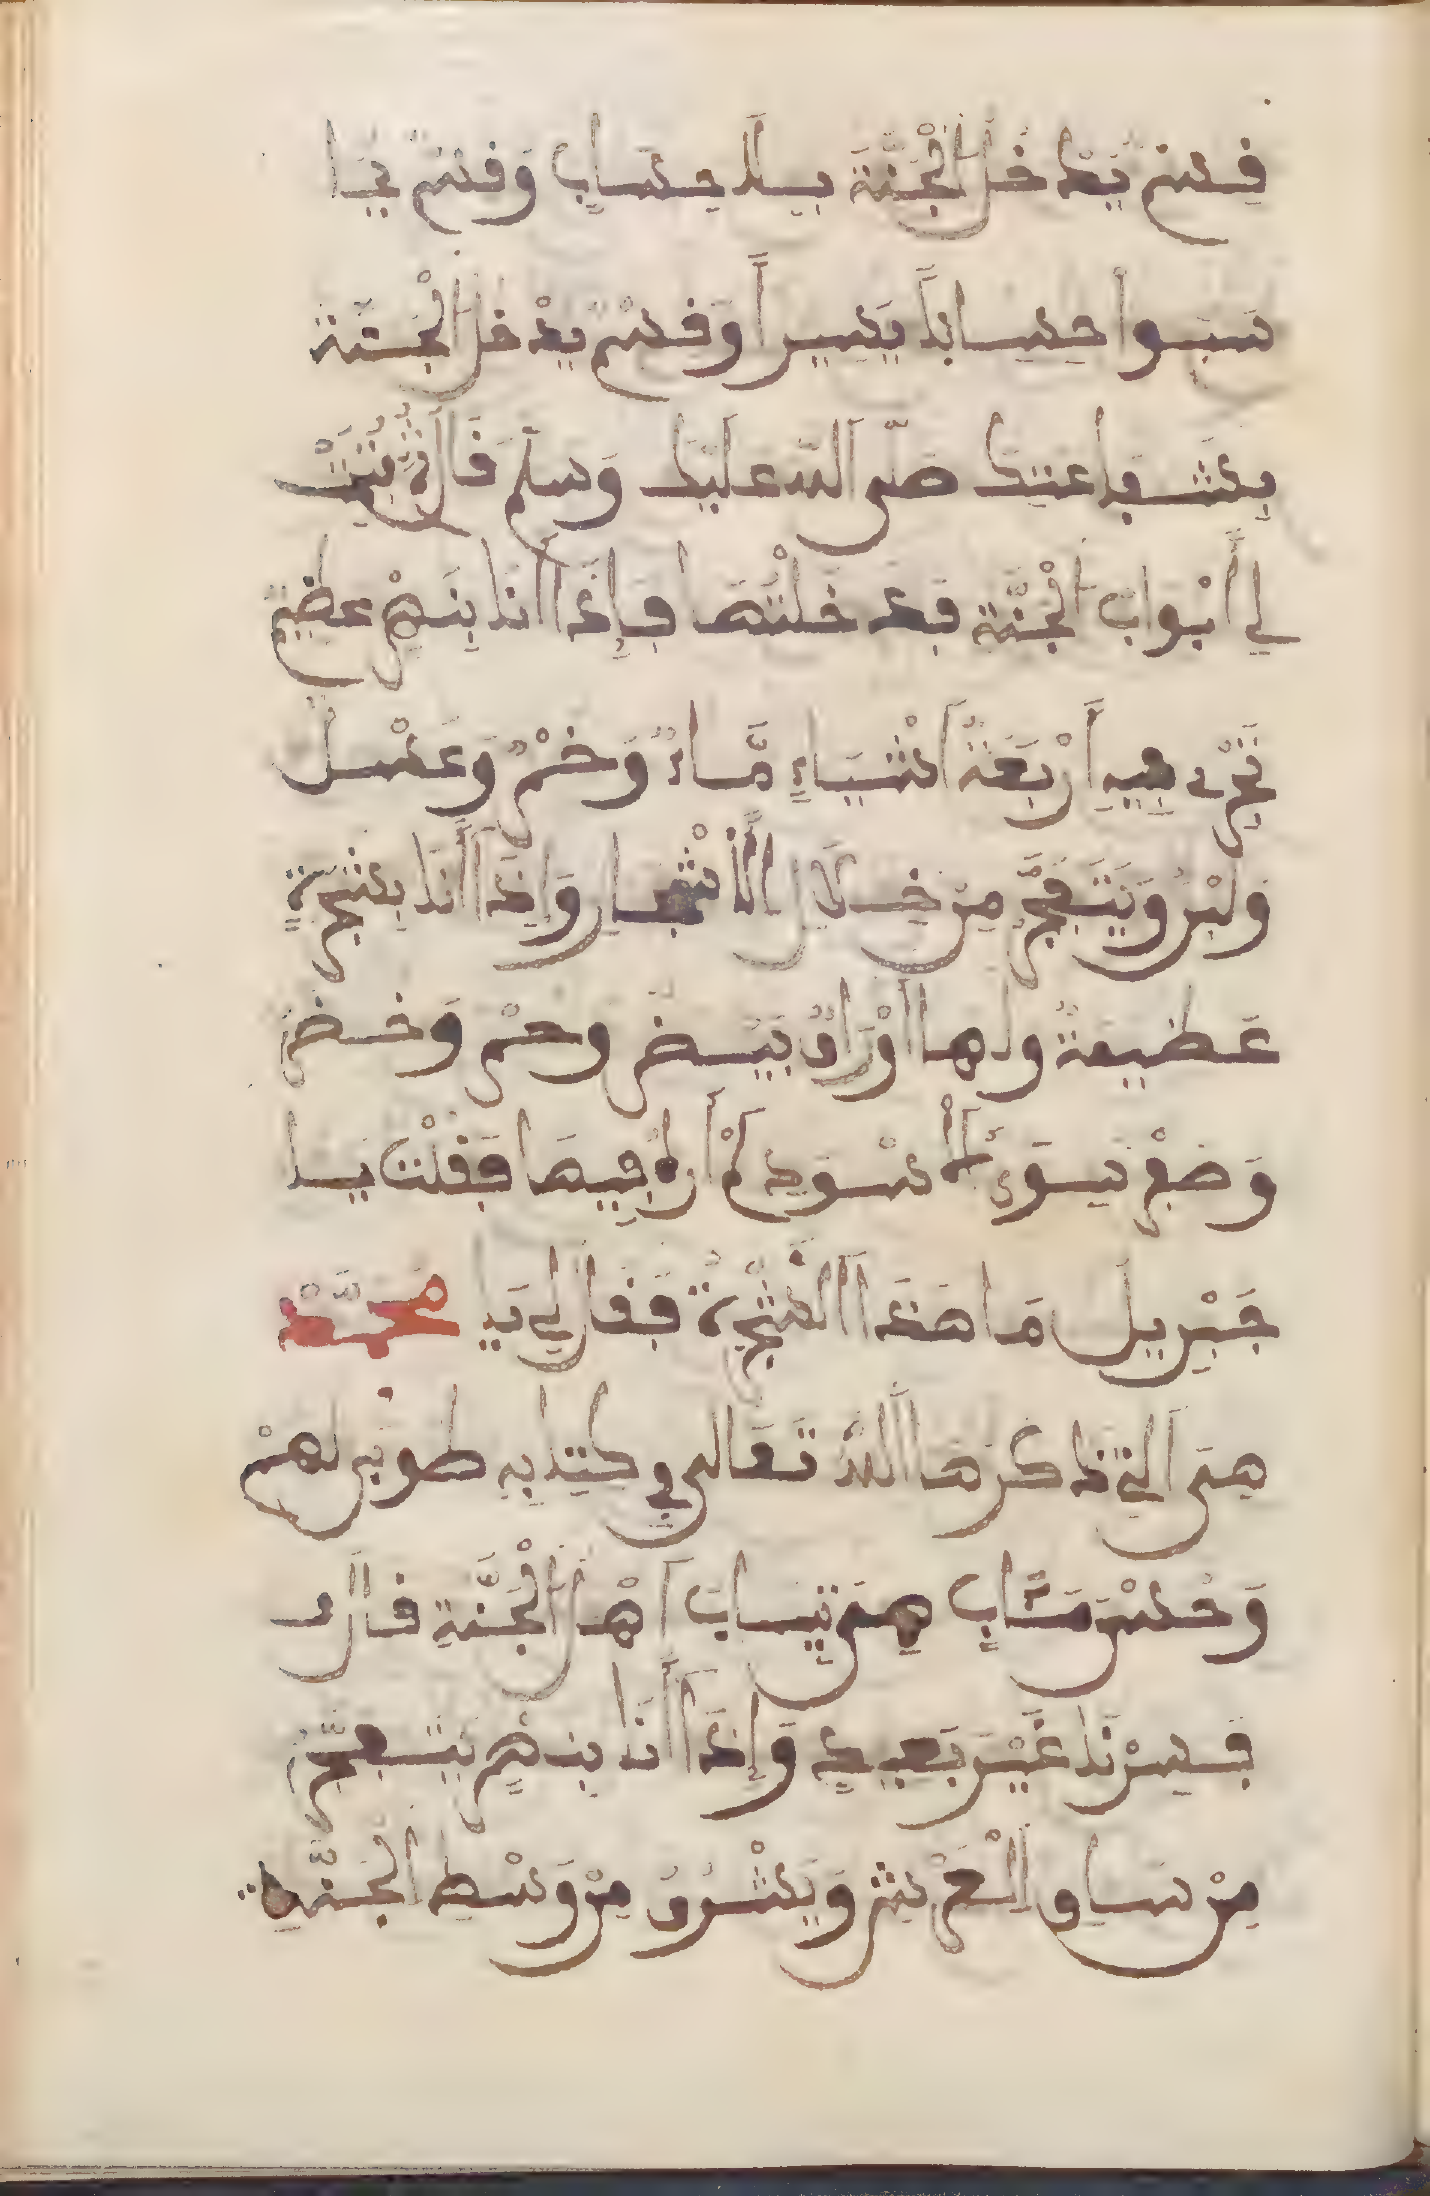 فسم يدخل الجنة بلا حساب وقسم يحا
سبوا حسابا يسيرا وقسم يدخل الجنة
بشفاعته صلى الله عليه وسلم قال ثم فتحت
لي أبواب الجنة فدخلتها فإذا أنا بنهر عظيم
تجري فيه أربعة أشياء ماء وخمر وعسل
ولبن ويتفجر من خلال الأشجار وإذا أنا بشجرة
عظيمة ولها أوراق بيض وحمر وخضر
وصفر سوى الأسود لم أره فيها فقلت يا
جبريل ما هذا الشجرة فقال لي يا محمد
هي التي ذكرها الله تعالى في كتابه طوبى لهم
وحسن مئاب هي ثياب أهل الجنة قال
فسرنا غير بعيد وإذا أنا بنهر يتفجر
من ساق العرش ويشق من وسط الجنة